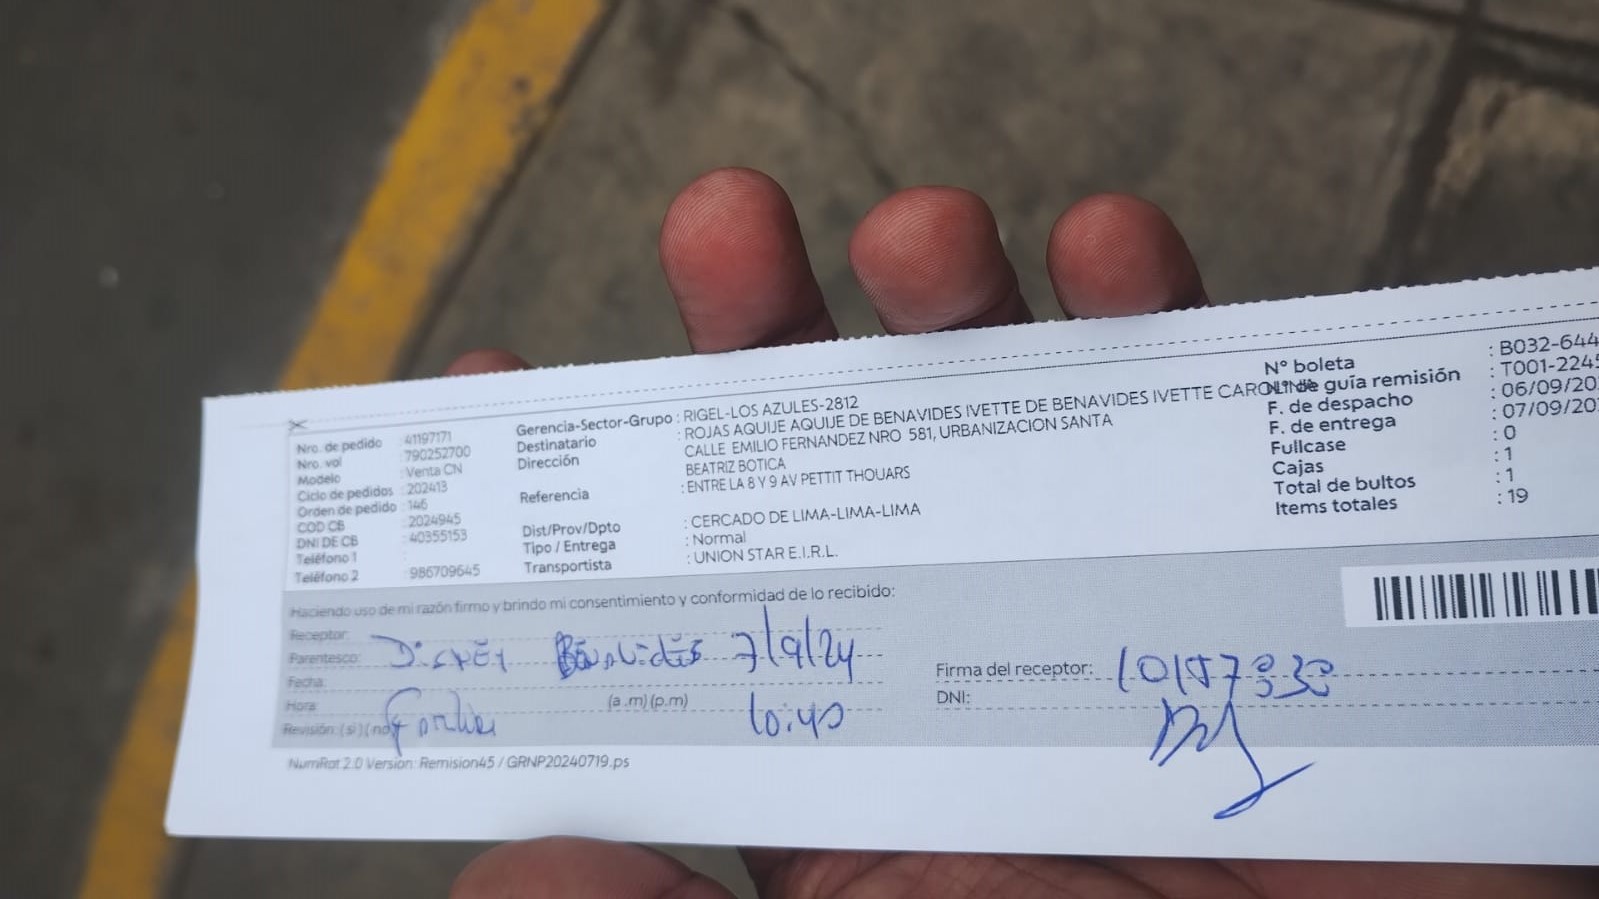 Nro. de pedido : 41197171
Nro. vol : 790252700
Modelo : Venta CN
Ciclo de pedidos : 202413
Orden de pedido : 146
COD CB : 2024945
DNI DE CB : 40355153
Teléfono 1 :
Teléfono 2 : 986709645
Gerencia-Sector-Grupo : RIGEL-LOS AZULES-2812
Destinatario : ROJAS AQUIJE AQUIJE DE BENAVIDES IVETTE DE BENAVIDES IVETTE CAROLINA
Dirección CALLE EMILIO FERNANDEZ NRO 581, URBANIZACION SANTA
BEATRIZ BOTICA
Referencia : ENTRE LA 8 Y 9 AV PETTIT THOUARS
Dist/Prov/Dpto : CERCADO DE LIMA-LIMA-LIMA
Tipo / Entrega : Normal
Transportista : UNION STAR E.I.R.L.
N° boleta : B032-644
N° de guía remisión : T001-2245
F. de despacho : 06/09/20
F. de entrega : 07/09/20
Fullcase : 0
Cajas : 1
Total de bultos : 1
Items totales : 19
Haciendo uso de mi razón firmo y brindo mi consentimiento y conformidad de lo recibido:
Receptor:
Parentesco: Benavides 7/9/24
Fecha:
Hora: (a .m) (p.m) 10:40
Revisión: ( si ) ( no )
Firma del receptor:
DNI:
NumRot 2.0 Version: Remision45 / GRNP20240719.ps